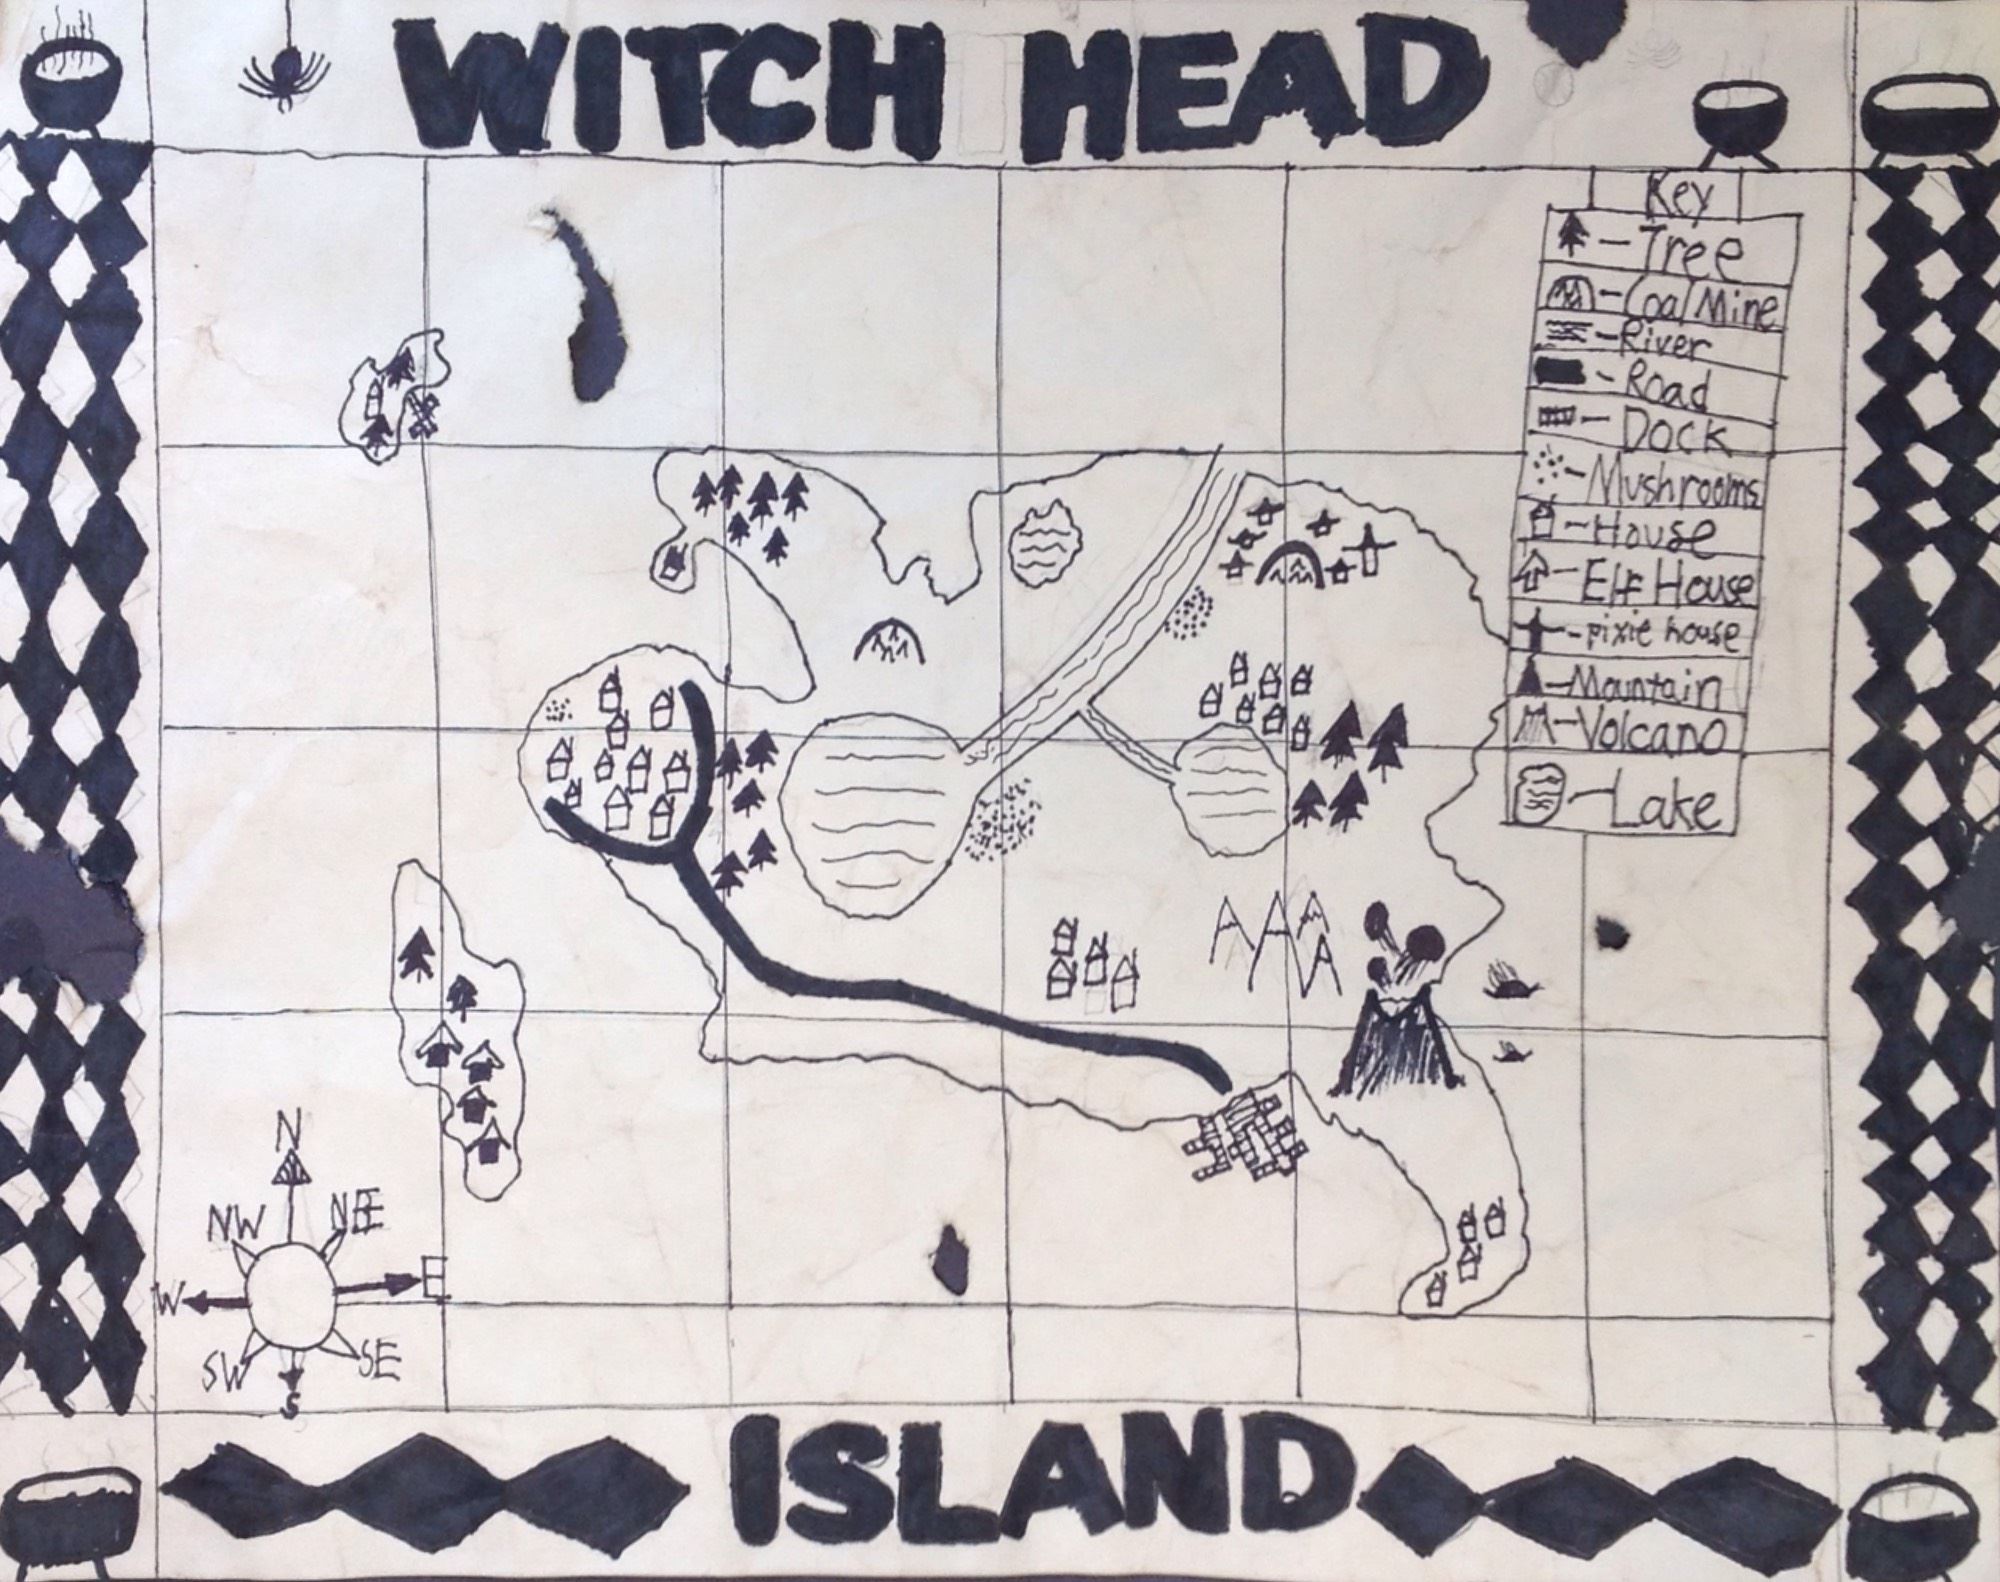 WITCH HEAD
Key
Tree
Coal Mine
River
Road
Dock
Mushrooms
House
Elf House
pixie house
Mountain
Volcano
Lake
N
NW
NE
W
E
SW
SE
S
ISLAND